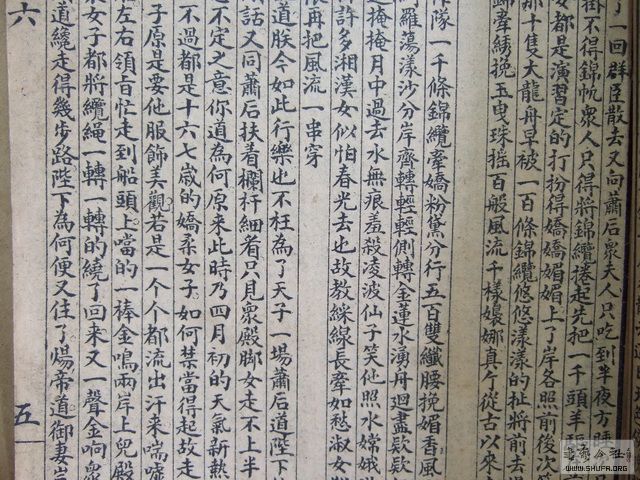 了一回群臣散去又向蕭后眾夫人只吃到半夜方睡
掛不得錦帆眾人只得將錦纜捲起先把一千頭羊
女都是演習定的打扮得嬌嬌媚媚上了岸各照前後次
那十隻大龍舟早被一百條錦纜悠悠漾漾的扯將前去
錦牽綉挽玉曳珠搖百般風流千樣嬝娜真个從古以來
隊一千條錦纜牽嬌粉黛分行五百雙纖腰挽媚香風
羅蕩漾沙分岸齊轉輕輕側轉金蓮水湧舟迴盡欵欵
遮掩掩月中過去水無痕羞殺凌波仙子笑他照水嫦娥
許多湘漢女似怕春光去也故教綵線長牽如愁淑女
張再把風流一串穿
道朕今如此行樂也不枉為了天子一場蕭后道陛下
話又同蕭后扶着欄杆細看只見眾殿脚女走不上半
不定之意你道為何原來此時乃四月初的天氣新熱
不過都是十六七歲的嬌柔女子如何禁當得起故走
子原是要他服飾美觀若是一个个都流出汗來喘噓
左右領旨忙走到船頭上噹的一棒金鳴兩岸上兒殿
女子都將纜繩一轉一轉的繞了回來又一聲金响眾
道纔走得幾步路陛下為何便又住了煬帝道御妻豈
六
五
书法金社
WWW.SHUFA.ORG